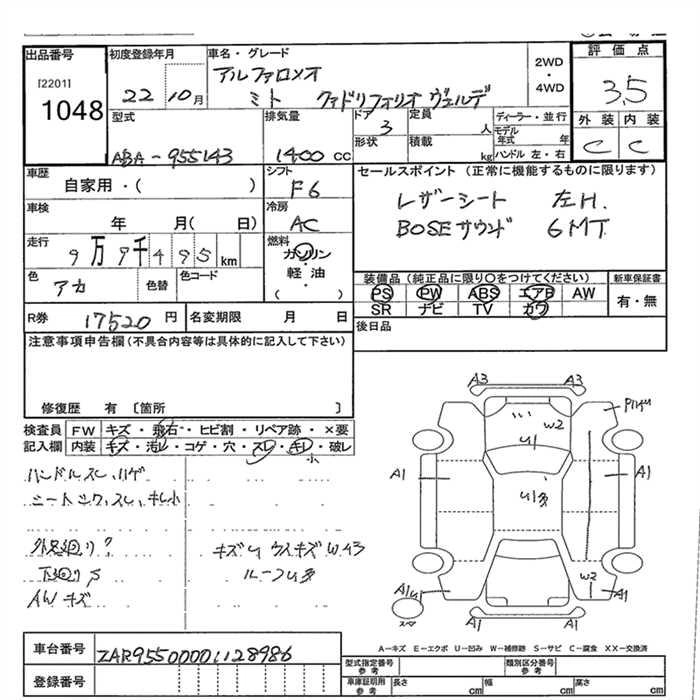 出品番号
[2201]
1048
初度登録年月
22 10月
車名・グレード
アルファロメオ
ミト クァドリフォリオ ヴェルデ
2WD
・
4WD
評価点
3.5
外装 内装
C C
型式
ABA-955143
排気量
1400 cc
ドア
3
形状
定員
人
積載
kg
ディーラー・並行
モデル年式 年
ハンドル 左・右
車歴
自家用・( )
シフト
F6
車検
年 月( 日)
冷房
AC
走行
9万9千495km
燃料
ガソリン
・
軽油
( )
色
アカ
色替
色コード
セールスポイント (正常に機能するものに限ります)
レザーシート 左H.
BOSEサウンド 6MT
装備品 (純正品に限り〇をつけてください)
PS PW ABS エアB AW
SR ナビ TV カワ
新車保証書
有・無
後日品
R券
17520円
名変期限 月 日
注意事項申告欄 (不具合内容等は具体的に記入して下さい)
修復歴 有 〔箇所 〕
検査員記入欄
FW キズ・飛石・ヒビ割・リペア跡・×要
内装 キズ・汚レ・コゲ・穴・スレ・キレ・破レ
小
ハンドルスレ、ハゲ
シートシワ、スレ、キレ小
外足廻りサ
下廻りS
AWキズ
キズU ウスイキズW A3
ルーフU多
A3 A3
W2
U1
A1 U1多 A1
W2
A1U1 A1
A1 A1
A-キズ E-エクボ U-凹み W-補修跡 S-サビ C-腐食 XX-交換済
車台番号
ZAR95500001128986
登録番号
型式指定番号
参考
類別区分番号
参考
車庫証明用
参考
長さ cm
幅 cm
高さ cm